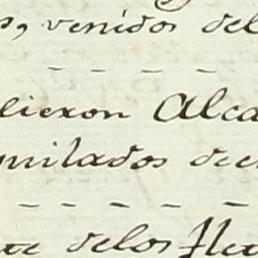 venidos del
lieron Alca
milados de
delos Fle